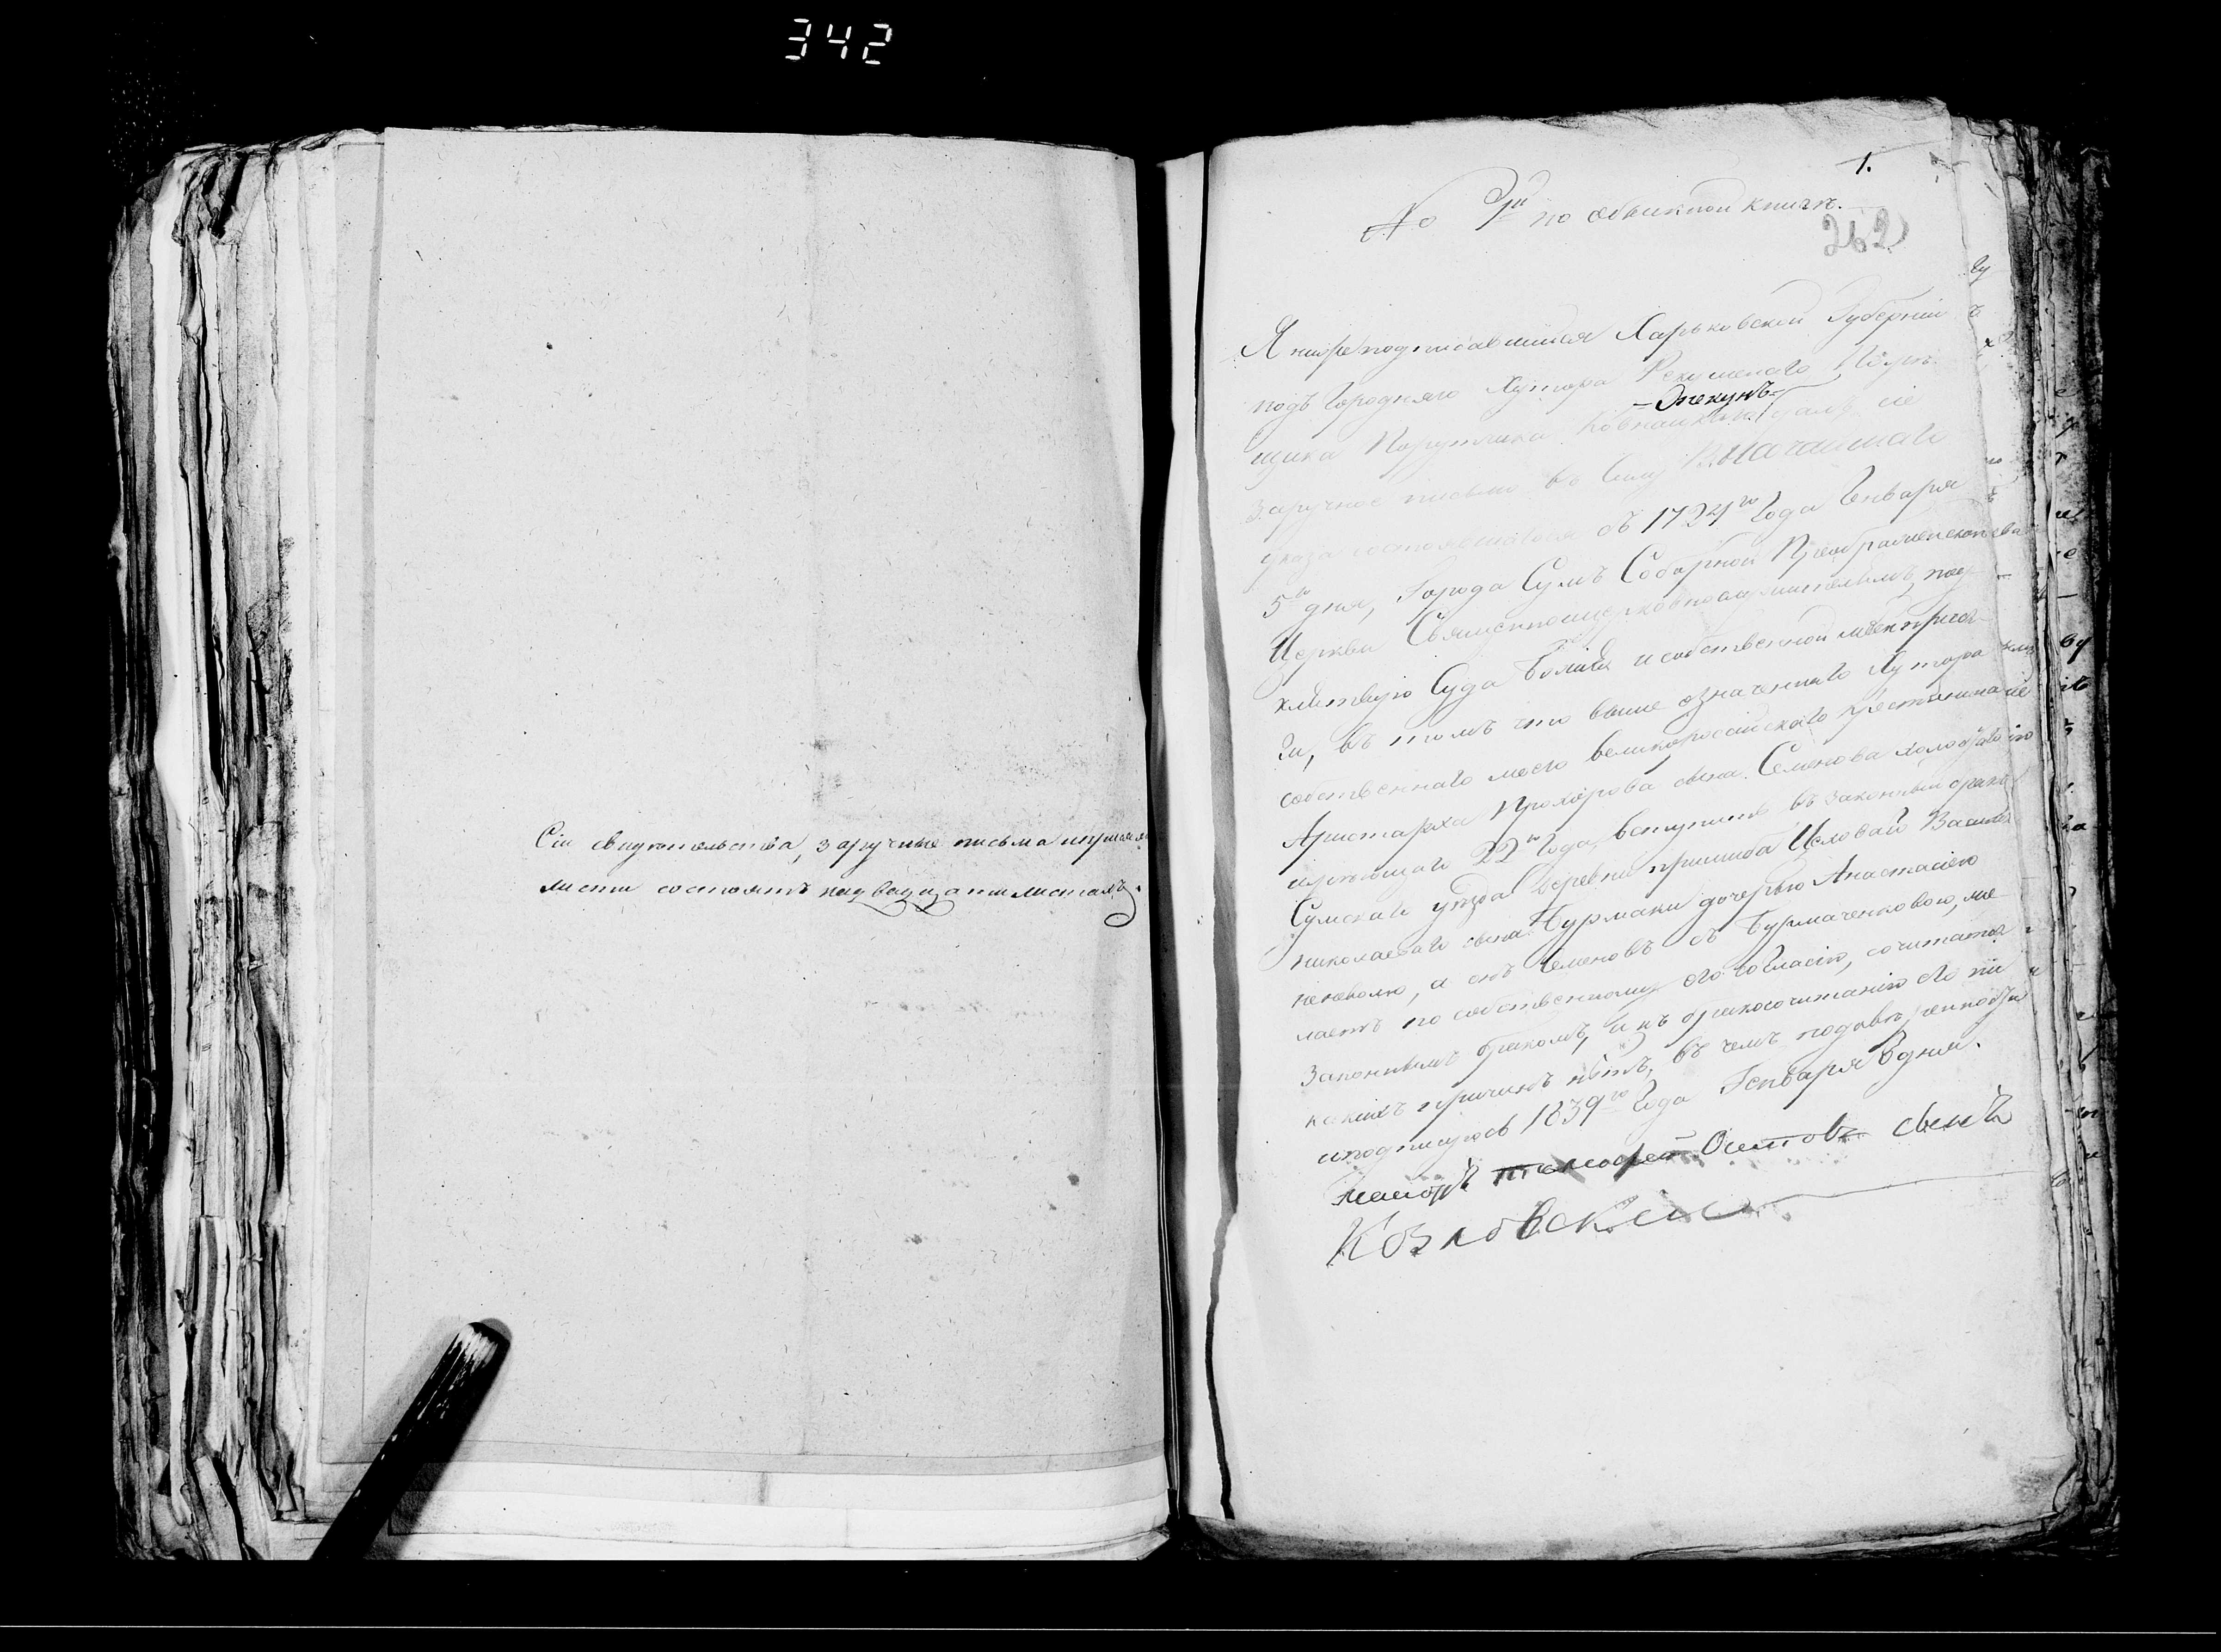 342
Сіи свидѣтельства, заручные письма и присяжн
листы состоятъ на двадцати листахъ.
1.
No 1й по обыскной книгѣ.
262
Я нижеподписавшійся Харьковской Губерніи
подъ городняго Хутора помѣ
-Опекунъ-
щика Порутчика далъ сіе
заручное письмо въ силу Высочайшаго
указа состоявшагося съ 1724го Года Генваря
5го дня, города Сумъ Соборной Преображенской
Церкви Священноцерковнослужителямъ, под
клятвую Суда Божія и собственной моей прися
ги, въ томъ что выше означеннаго Хутора
собственнаго моего великороссійскаго крестьянина
Аристарха Прохорова сына Семенова холостаго
имѣющаго 22й года, вступить въ законный бракъ
Сумскаго уѣзда Деревни
николаевого сына Бурмаки дочерью Анастасіею
неневолю, а онъ Семеновъ съ Бурмаченковою, же
лаетъ по собственному его согласію, сочитатся
законнымъ бракомъ, и къ бракосочитанію его ни
какихъ причинъ нѣтъ, въ чемъ подавъ,
и подпишусь 1839го Года Генваря 8 дня.
маіоръ Осиповъ сынъ
Козловскій